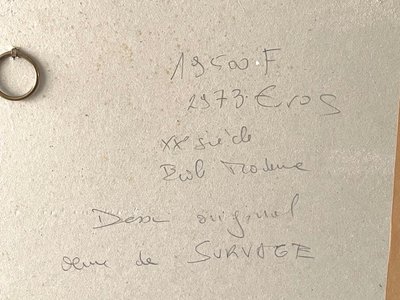 19500 F
2973 Eros
XXe siècle
Ecole Moderne
Dessin original
œuvre de SURVAGE